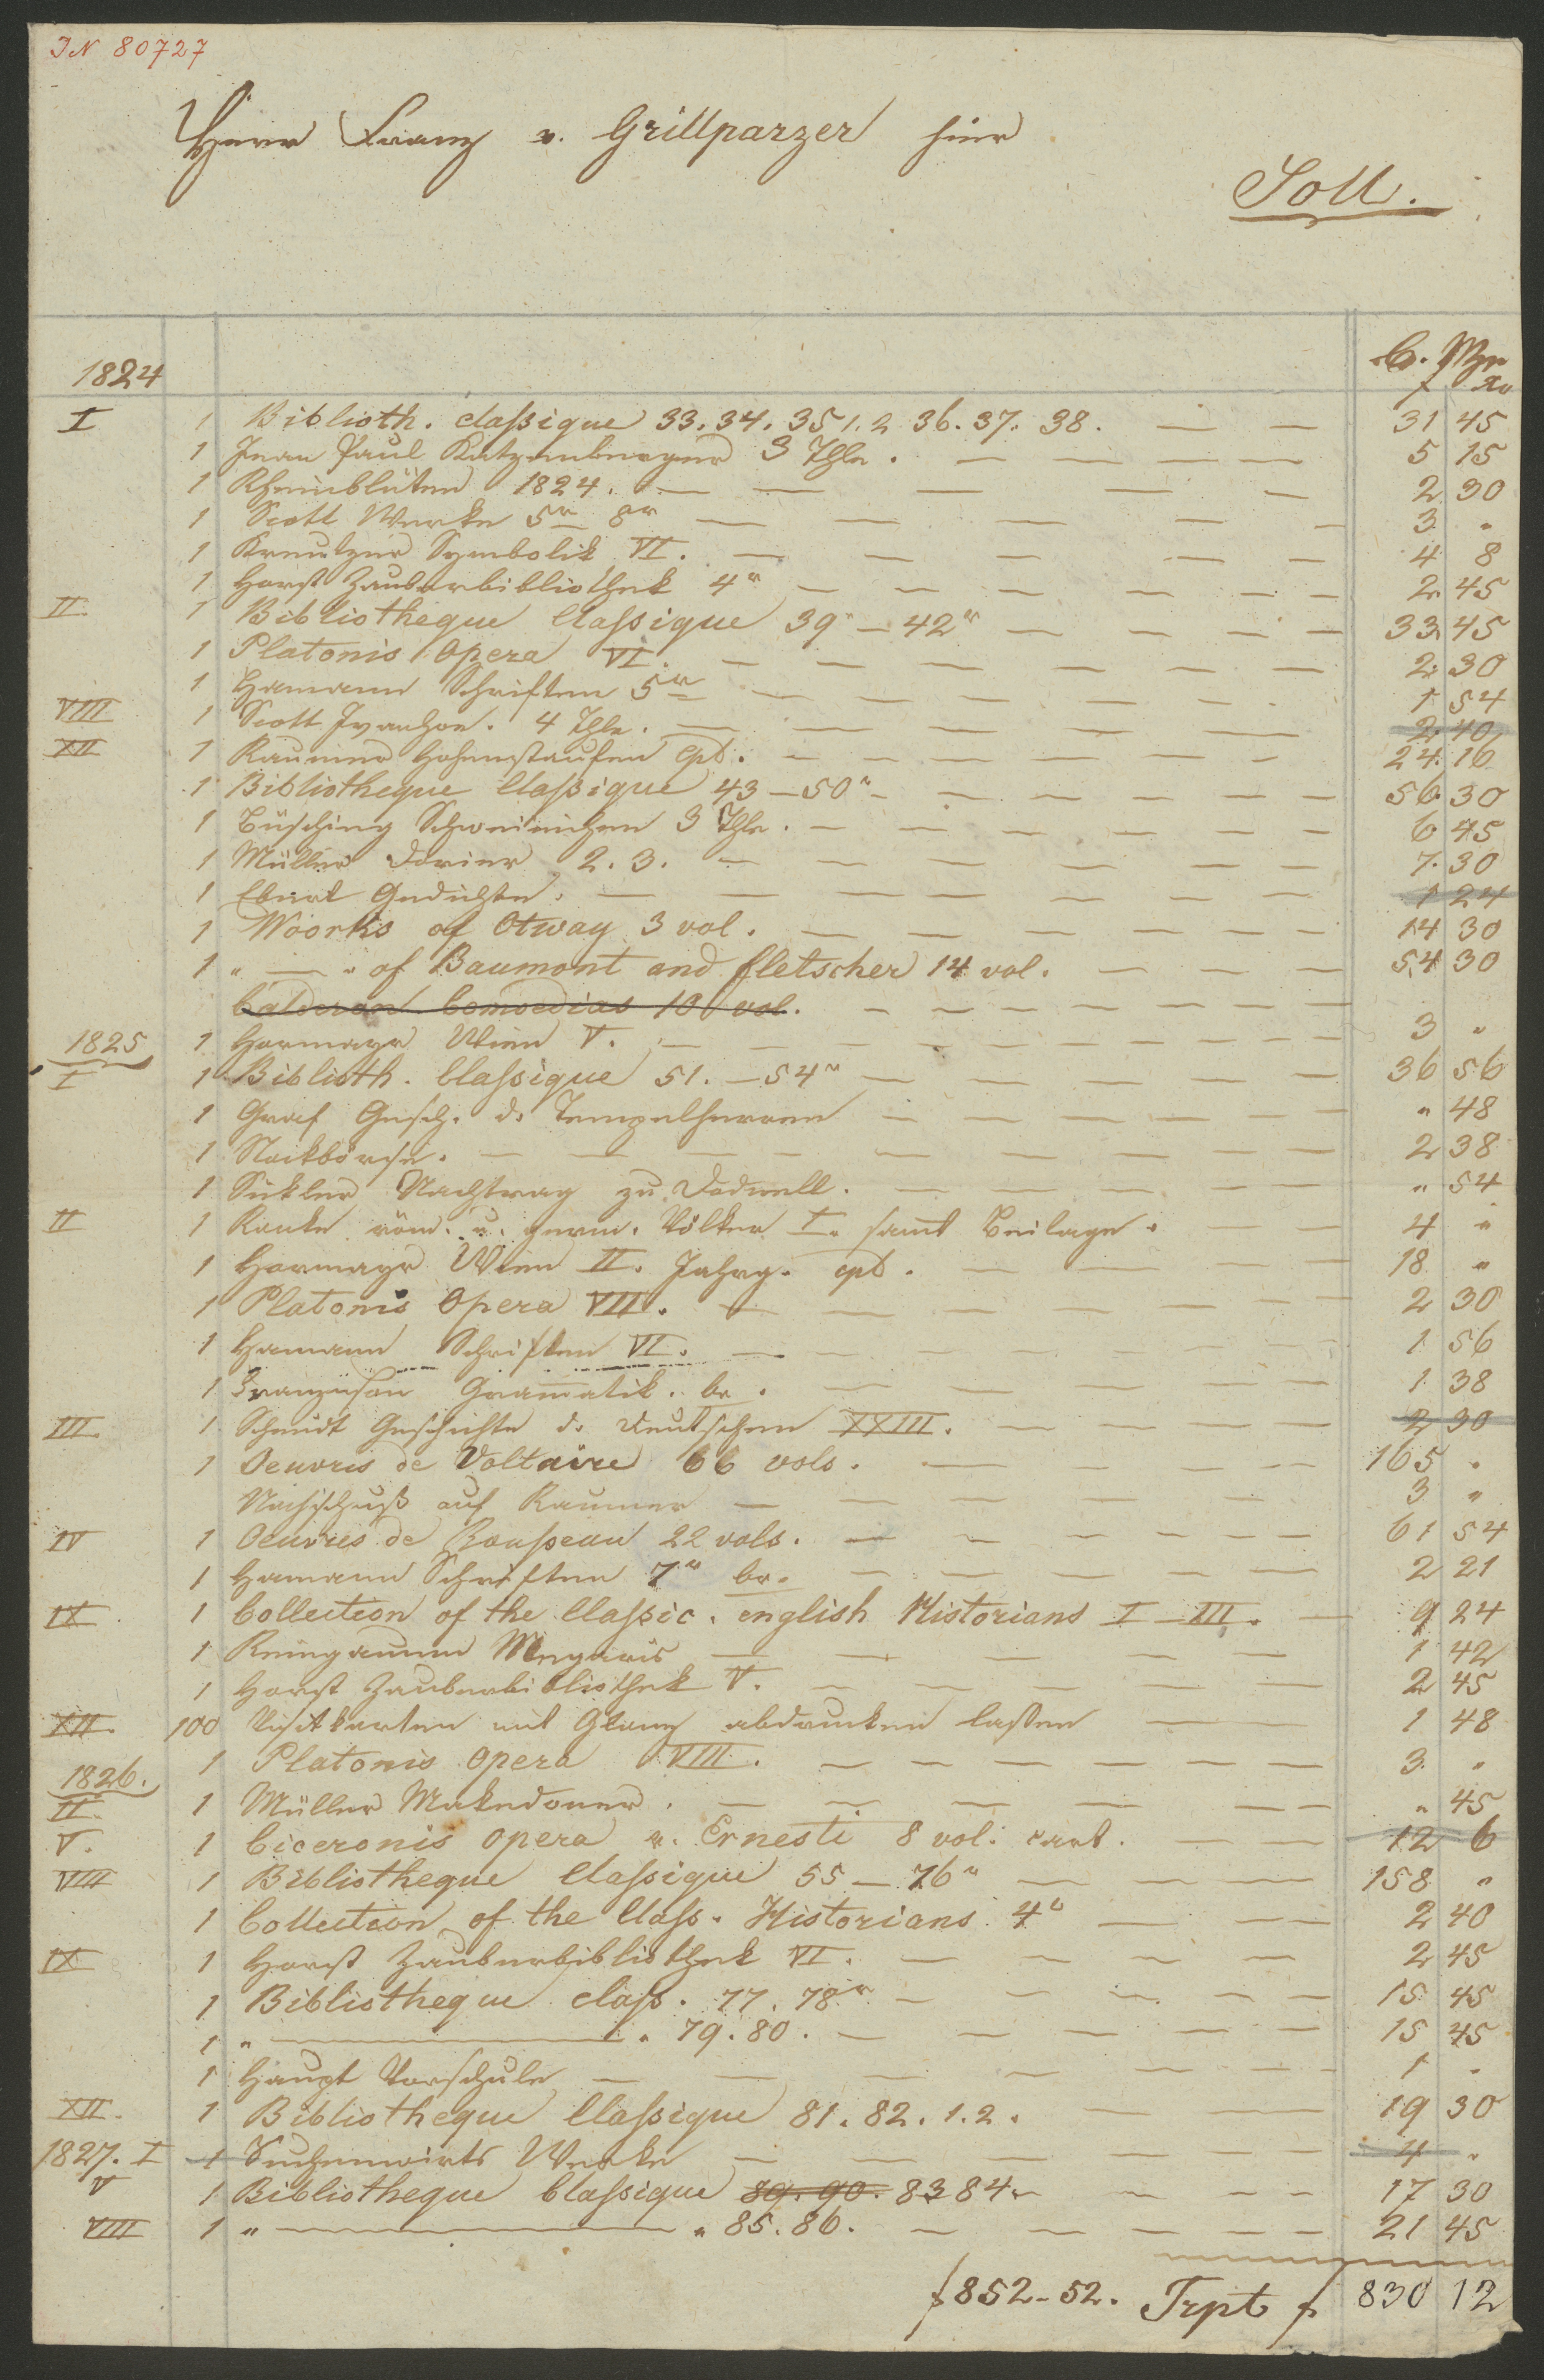 IN 80727
Herr Franz v. Grillparzer hier
Soll.
C. Mze
1824 f xr
I 1 Biblioth. classique 33. 34. 35 1. 2 36. 37. 38. 31 45
1 Jean Paul Katzenberger 3 Thle. 5 15
1 Rheinblüten 1824. 2 30
1 Scott Werke 5r 8r 3 "
1 Kreutzer Symbolik VI. 4 8
1 Horst Zauberbibliothek 4r 2 45
II. 1 Bibliotheque Classique 39r – 42r 33 45
1 Platonis Opera VI. 2 30
1 Hamann Schriften 5r 1 54
VIII 1 Scott Ivanhoe. 4 Thle. 2 40
XII 1 Raumer Hohenstaufen cpl. 24 16
1 Bibliotheque Classique 43 – 50r 56 30
1 Büsching Schweinichen 3 Thle. 6 45
1 Müller Dorier 2. 3. 7 30
1 Ebert Gedichte. 1 24
1 Woorks of Otway 3 vol. 14 30
1 " — " of Baumont and fletscher 14 vol. 54 30
Calderon Comoedias 10 vol.
1825 1 Hormayr Wien V. 3 "
I 1 Biblioth. Classique 51. – 54r 36 56
1 Graf Gesch. d. Tempelherren " 48
1 Stockbörse. 2 38
1 Sickler Nachtrag zu Dodwell. " 54
II 1 Ranke röm. u. germ. Völker I. samt Beilage. 4 "
1 Hormayr Wien II. Jahrg. cpl. 18 "
1 Platonis Opera VII. 2 30
1 Hamann Schriften VI. 1 56
1 Franzuson Gramatik. br. 1 38
III. 1 Schmidt Geschichte d. Deutschen XXIII. 2 30
1 Oeuvris de Voltaire 66 vols. 165 "
Nachschuß auf Raumer 3 "
IV 1 Oeuvres de Rousseau 22 vols. 61 54
1 Hamann Schriften 7r br. 2 21
IX 1 Collection of the Classic. english Historians I – III. 9 24
1 Reinganum Megaris 1 42
1 Horst Zauberbibliothek V. 2 45
XII. 100 Visitkarten mit Glanz abdrucken lassen 1 48
1 Platonis Opera VIII. 3 "
1826.
II. 1 Müller Makedoner. " 45
V. 1 Ciceronis opera v. Ernesti 8 vol. cart. 12 6
VIII 1 Bibliotheque Classique 55 – 76r 158 "
1 Collection of the Class. Historians 4r 2 40
IX 1 Horst Zauberbibliothek VI. 2 45
1 Bibliotheque class. 77. 78r 15 45
1 " — " 79. 80. 15 45
1 Haupt Vorschule 1 "
XII. 1 Bibliotheque Classique 81. 82. 1. 2. 19 30
1827. I 1 Suchenwirts Werke 4 "
V 1 Bibliotheque Classique 89. 90. 83 84. 17 30
VIII 1 " — " 85. 86. 21 45
f 852 - 52. Trpt f 830 12